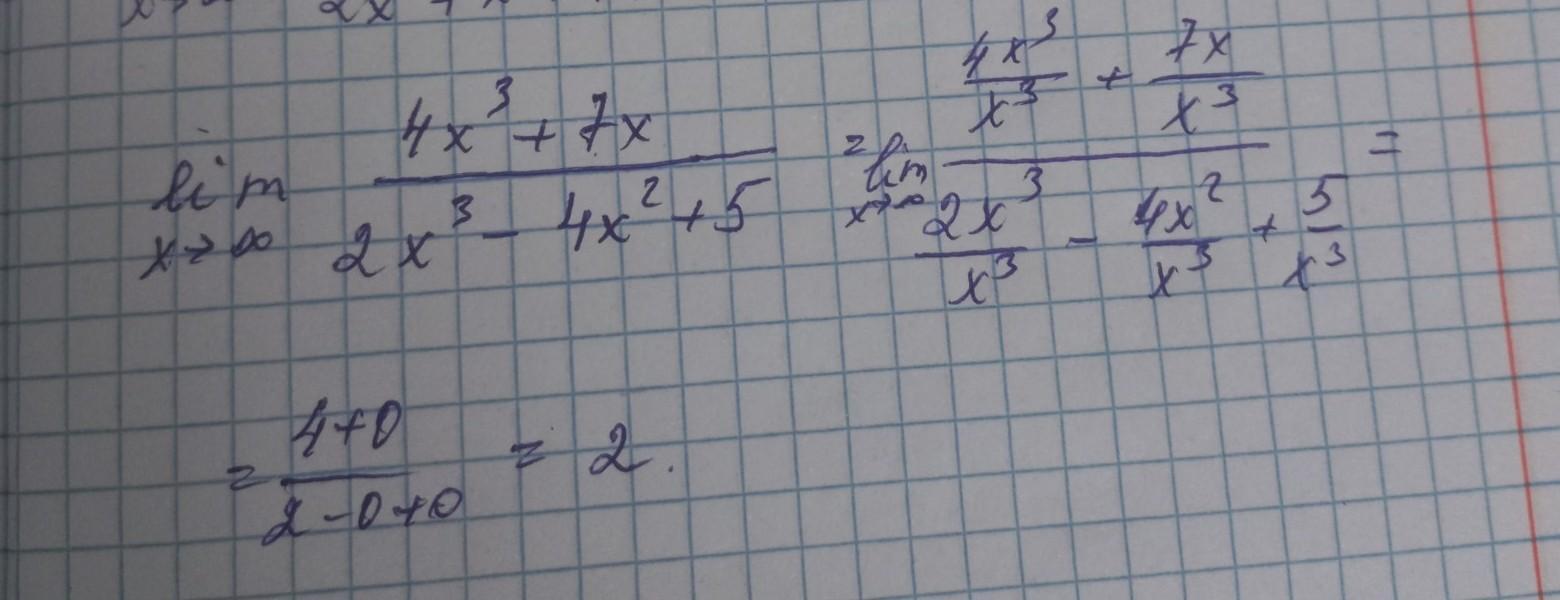 lim x→∞ (4x³ + 7x)/(2x³ - 4x² + 5) = lim x→∞ (4x³/x³ + 7x/x³)/(2x³/x³ - 4x²/x³ + 5/x³) =
= (4+0)/(2-0+0) = 2.